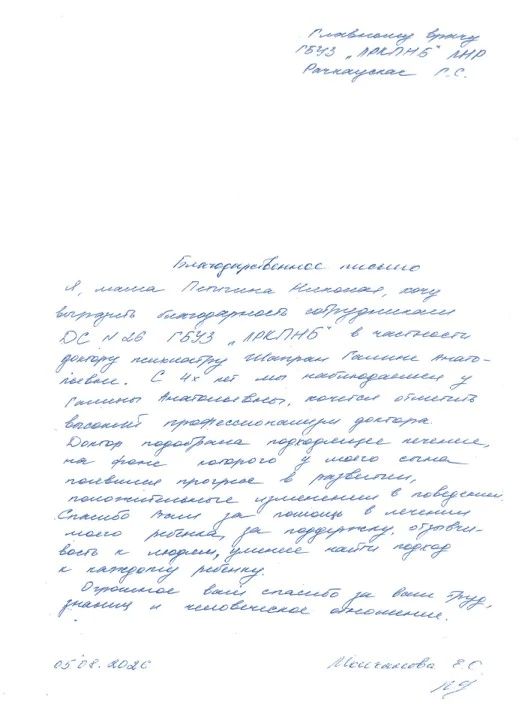 Главному врачу
ГБУЗ „ЛРКПНБ" ЛНР
Рачкаускас Г.С.
Благодарственное письмо
Я, мама Николая, хочу
выразить благодарность сотрудникам
ДС №26 ГБУЗ „ЛРКПНБ" в частности
доктору психиатру Шапран Галине Анато-
льевне. С 4х лет мы наблюдаемся у
Галины Анатольевны, хочется отметить
высокий профессионализм доктора.
Доктор подобрала подходящее лечение,
на фоне которого у моего сына
появился прогресс в развитии,
положительные изменения в поведении
Спасибо Вам за помощь в лечении
моего ребенка, за поддержку, отзывчи-
вость к людям, умение найти подход
к каждому ребенку.
Огромное вам спасибо за Ваш труд,
знания и человеческое отношение.
05.08.2026
Молчанова Е.С